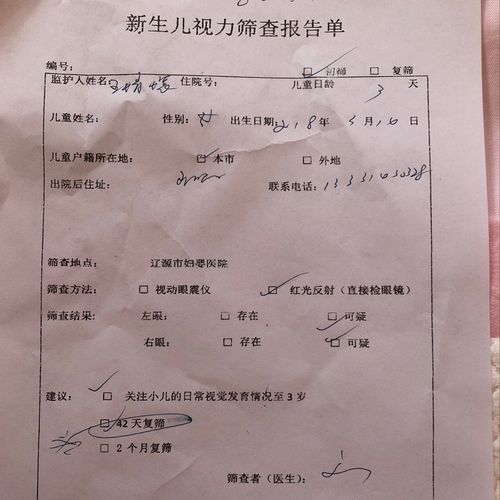 新生儿视力筛查报告单
编号：
☑ 初筛 □ 复筛
监护人姓名： 住院号： 儿童日龄 3 天
儿童姓名： 性别：女 出生日期：2018年 月 日
儿童户籍所在地： ☑ 本市 □ 外地
出院后住址： 联系电话：
筛查地点： 辽源市妇婴医院
筛查方法： □ 视动眼震仪 ☑ 红光反射（直接检眼镜）
筛查结果： 左眼： □ 存在 ☑ 可疑
右眼： □ 存在 ☑ 可疑
建议： ☑ 关注小儿的日常视觉发育情况至3岁
☑ 42天复筛
□ 2个月复筛
筛查者（医生）：